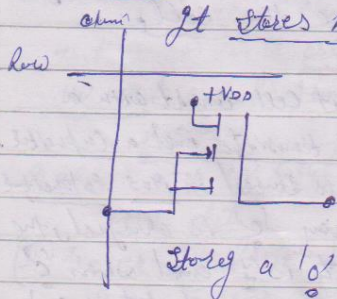 Column
It stores
Row
+VDD
Stores a '0'